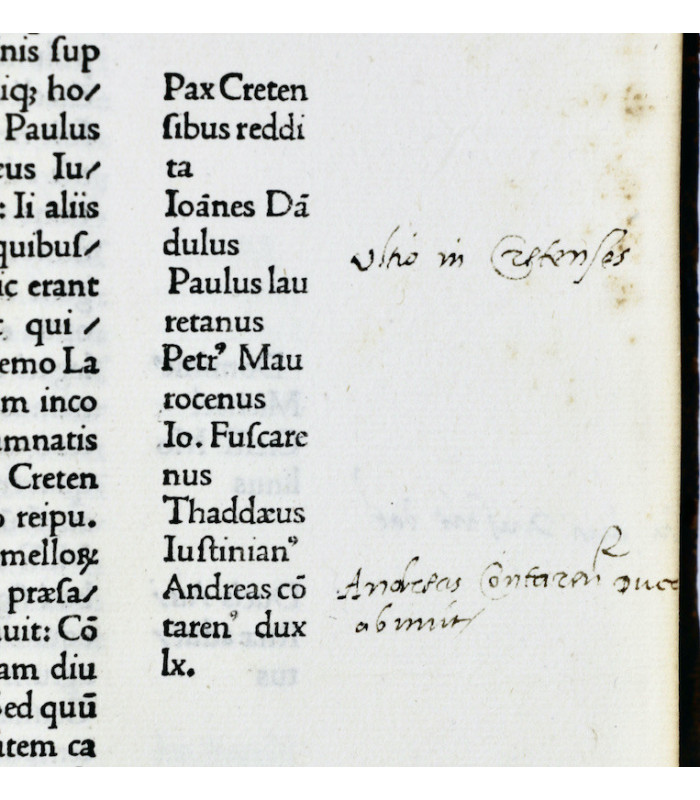 nis ſup
iqꝫ ho⸗
Paulus
cus Iu⸗
: Ii aliis
quibuſ⸗
ic erant
qui ⸗
emo La
m inco
mnatis
Creten
o reipu.
melloꝝ
præſa⸗
uit: Cō
am diu
Sed quū
item ca
Pax Creten
ſibus reddi
ta
Ioānes Dā
dulus
Paulus lau
retanus
Petrꝰ Mau
rocenus
Io. Fuſcare
nus
Thaddæus
Iuſtinianꝰ
Andreas cō
tarenꝰ dux
lx.
Vltio in Cretenſes
Andreas Contaren